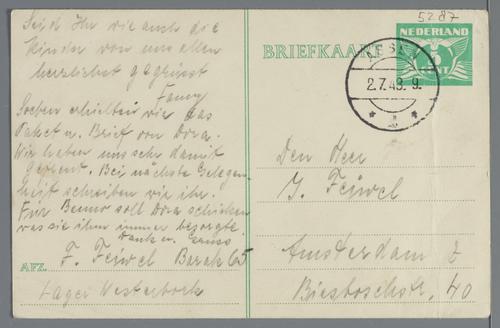 5287
NEDERLAND
5
CENT
BRIEFKAART
2.7.43. 9.
Seid Ihr wie auch die
Kinder von uns allen
herzlichst gegrüsst
Fanny
Soeben erhielten wir das
Paket u. Brief von Dora.
Wir haben uns sehr damit
gefreut. Bei nächste Gelegen-
heit schreiben wir ihr.
Für Benno soll Dora schicken
was sie ihm immer besorgte.
Dank u. Gruss
F. Feiwel Barak 65
AFZ.
Lager Westerbork
Den Heer
J. Feiwel
Amsterdam Z
Biesboschstr. 40